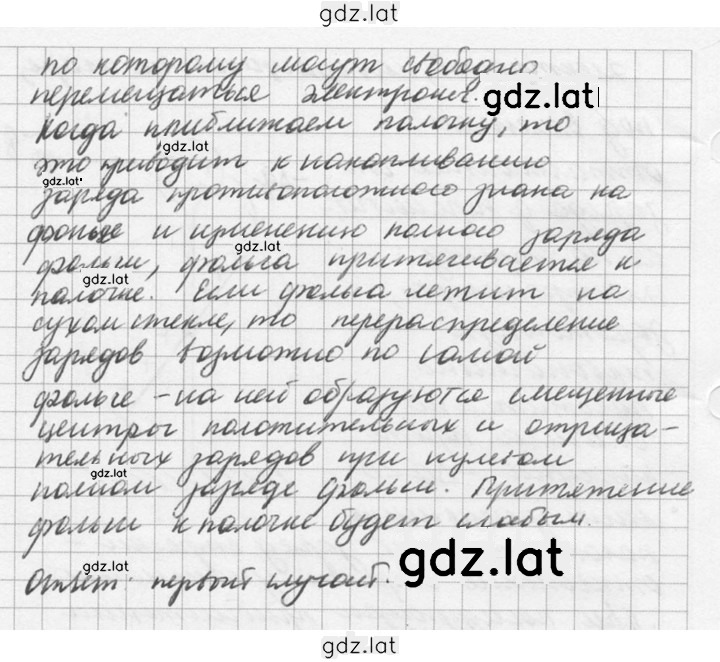 gdz.lat
по которому могут свободно
перемещаться электроны.
gdz.lat
Когда приближаем палочку, то
gdz.lat
это приводит к накапливанию
gdz.lat
заряда противоположного знака на
фольге и изменению полного заряда
gdz.lat
фольги, фольга притягивается к
палочке. Если фольга лежит на
gdz.lat
сухом стекле, то перераспределение
зарядов возможно по самой
фольге - на ней образуются смещенные
центры положительных и отрица-
тельных зарядов при нулевом
gdz.lat
полном заряде фольги. Притяжение
фольги к палочке будет слабым.
gdz.lat
gdz.lat
Ответ: первый случай.
gdz.lat